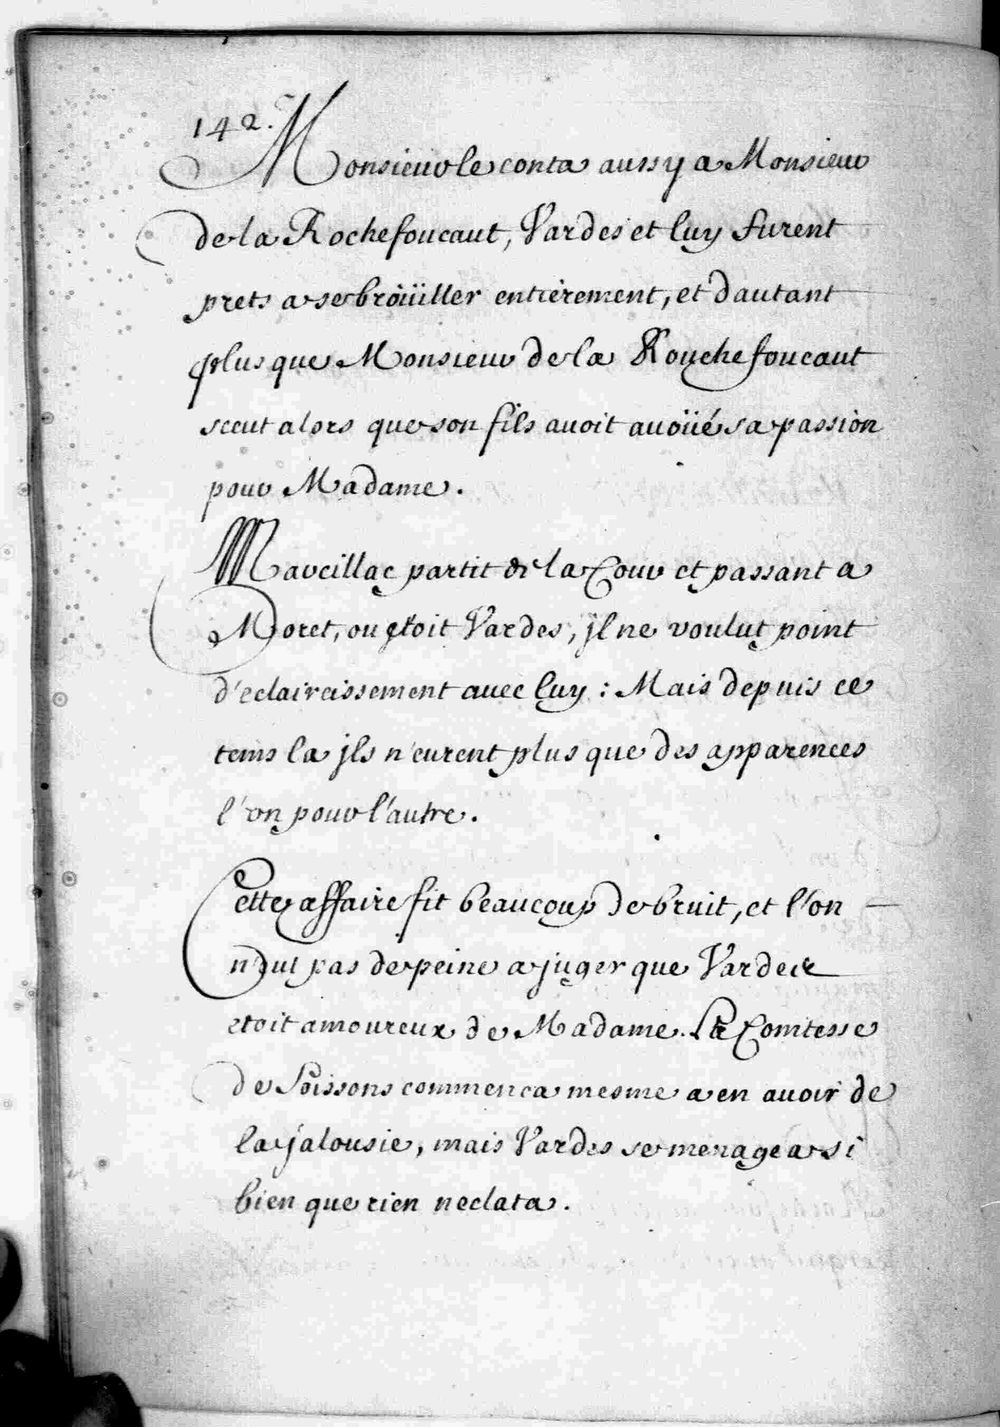 142.
Monsieur le conta aussy a Monsieur
de la Rochefoucaut, Vardes et luy furent
prets a se broüiller entièrement, et dautant
plus que Monsieur de la Rouchefoucaut
sceut alors que son fils auoit auoüé sa passion
pour Madame.
Marcillac partit de la Cour et passant a
Moret, ou etoit Vardes, jl ne voulut point
d'eclaircissement auec luy : Mais depuis ce
tems la jls n'eurent plus que des apparences
l'on pour l'autre.
Cette affaire fit beaucoup de bruit, et l'on
n'eut pas de peine a juger que Vardes
etoit amoureux de Madame. La Comtesse
de Soissons commenca mesme a en auoir de
la jalousie, mais Vardes se menagea si
bien que rien neclata.